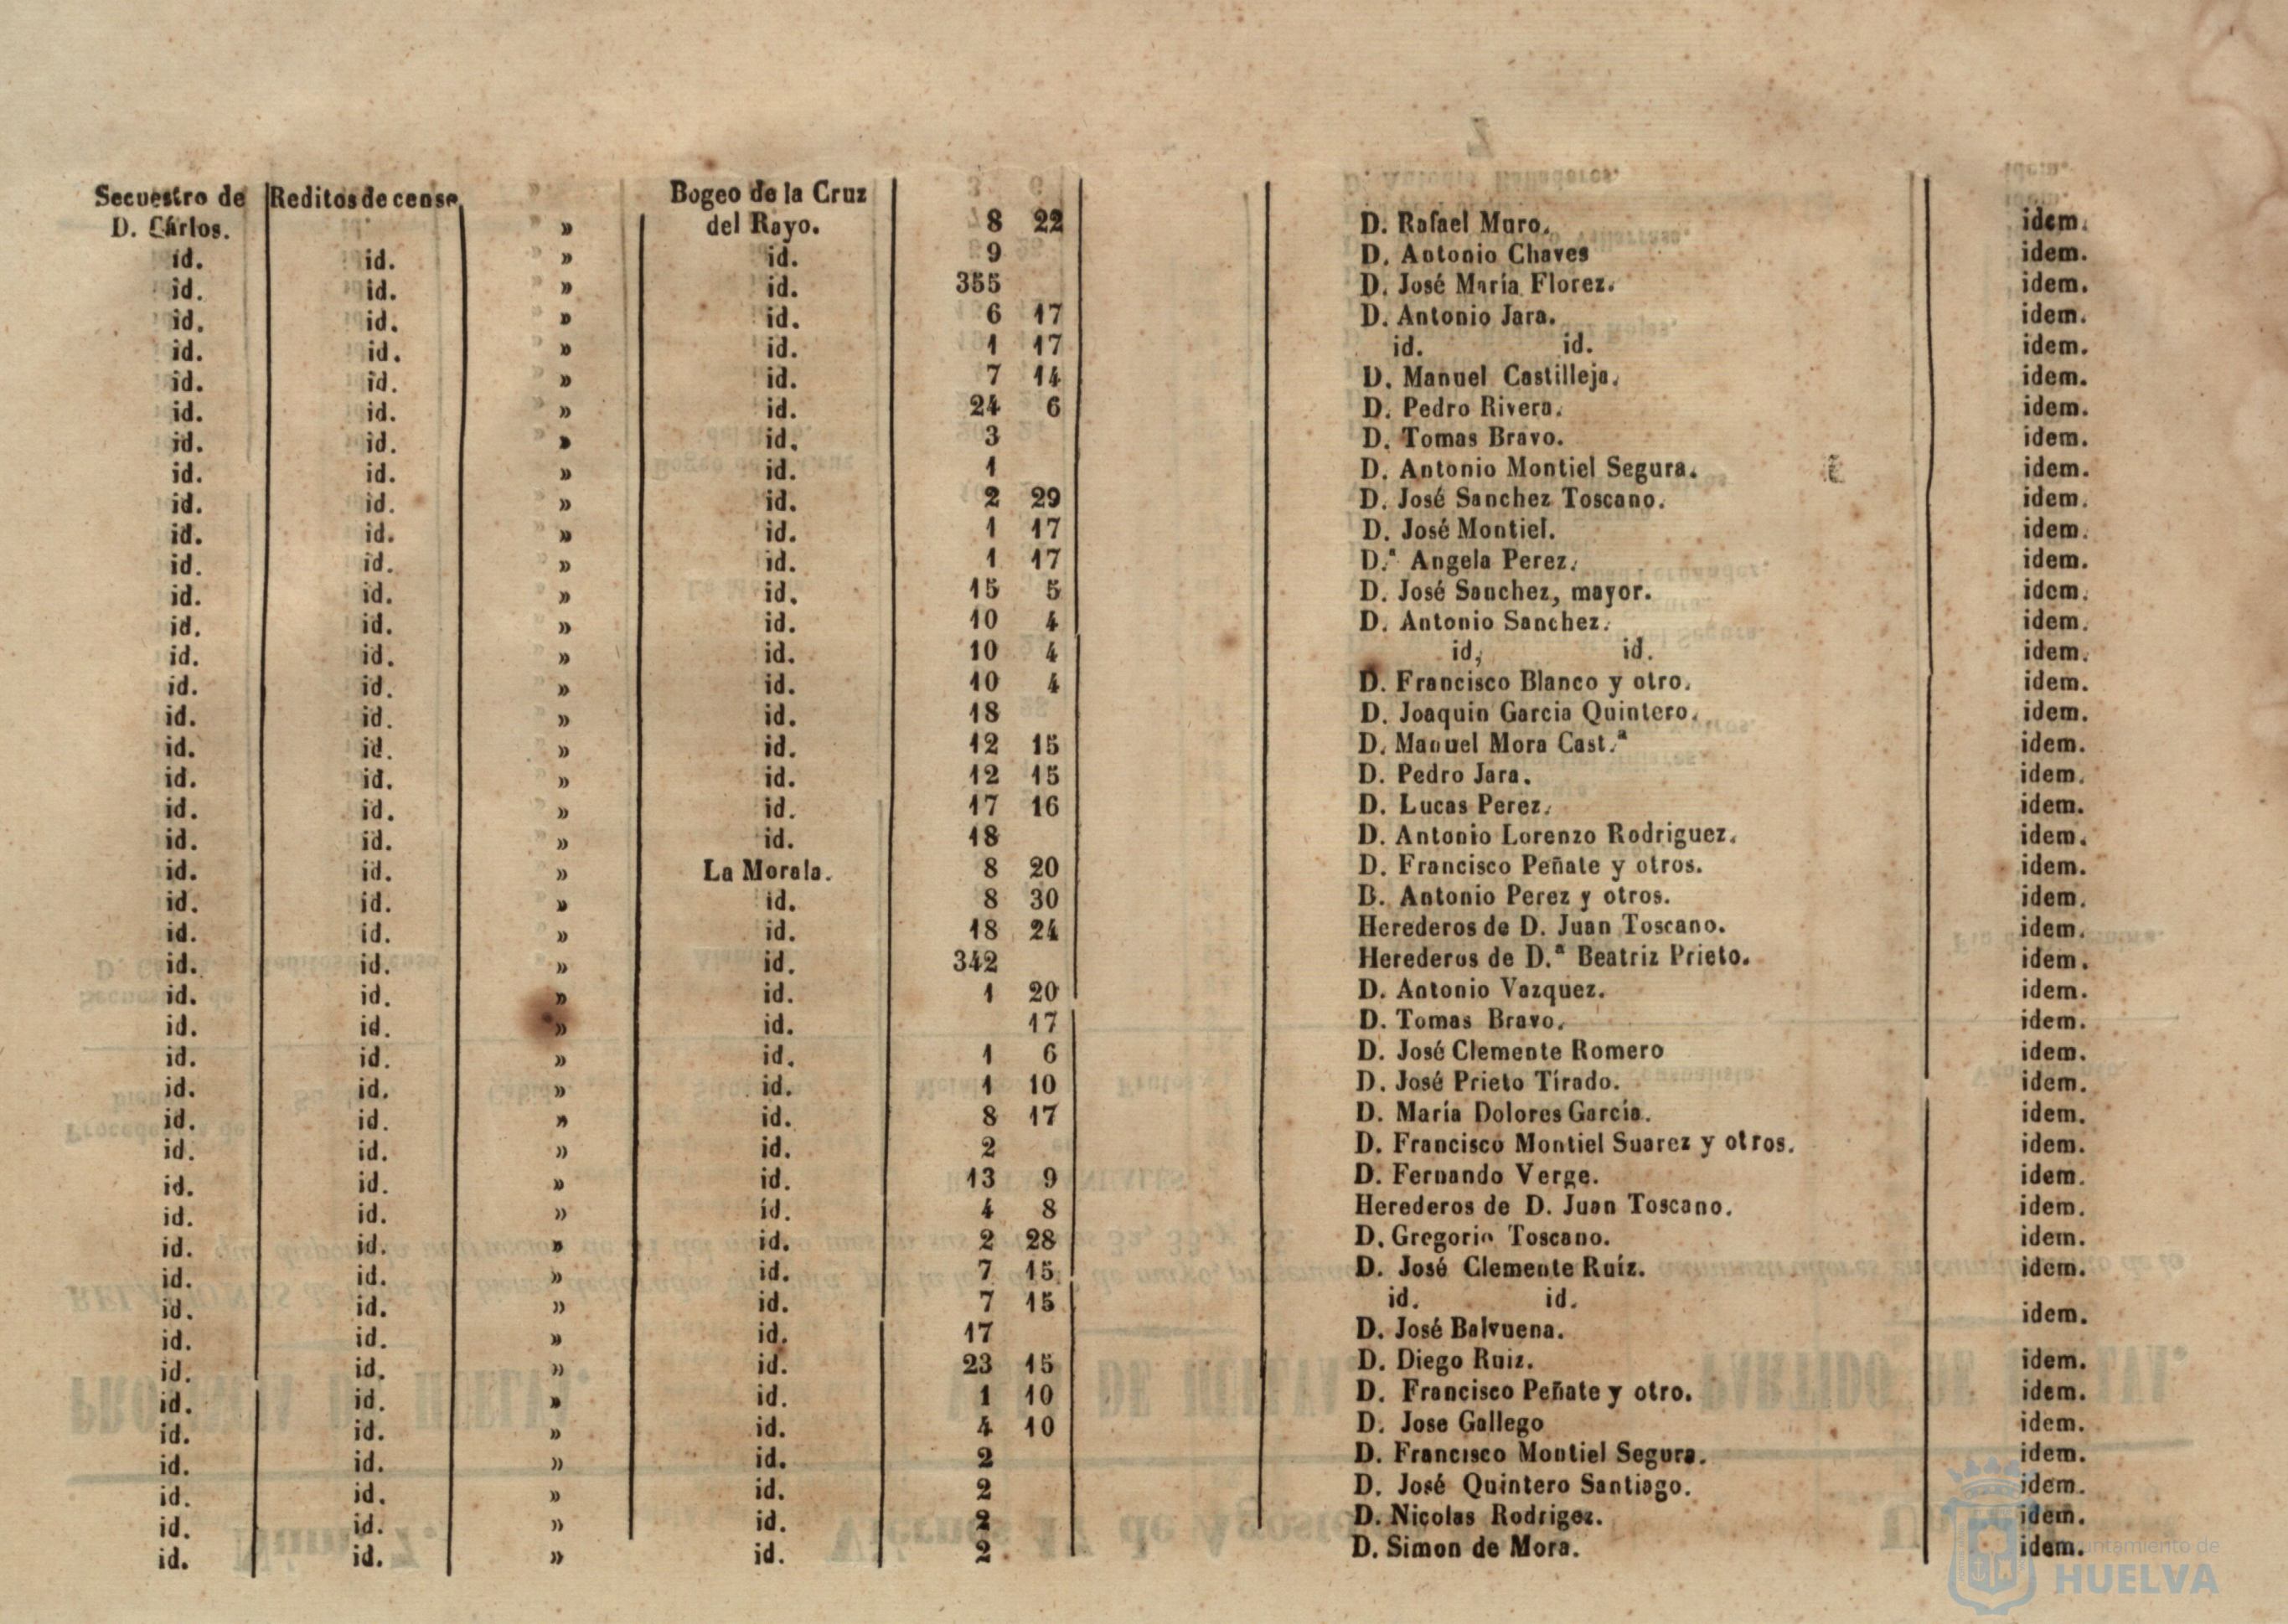 Secuestro de Reditos de cense » Bogeo de la Cruz
D. Cárlos. » del Rayo. 8 22 D. Rafael Muro. idem.
id. id. » id. 9 D. Antonio Chaves idem.
id. id. » id. 355 D. José María Florez. idem.
id. id. » id. 6 17 D. Antonio Jara. idem.
id. id. » id. 1 17 id. id. idem.
id. id. » id. 7 14 D. Manuel Castilleja. idem.
id. id. » id. 24 6 D. Pedro Rivera. idem.
id. id. » id. 3 D. Tomas Bravo. idem.
id. id. » id. 1 D. Antonio Montiel Segura. idem.
id. id. » id. 2 29 D. José Sanchez Toscano. idem.
id. id. » id. 1 17 D. José Montiel. idem.
id. id. » id. 1 17 D.ª Angela Perez. idem.
id. id. » id. 15 5 D. José Sanchez, mayor. idem.
id. id. » id. 10 4 D. Antonio Sanchez. idem.
id. id. » id. 10 4 id. id. idem.
id. id. » id. 10 4 D. Francisco Blanco y otro. idem.
id. id. » id. 18 D. Joaquin Garcia Quintero. idem.
id. id. » id. 12 15 D. Manuel Mora Cast.ª idem.
id. id. » id. 12 15 D. Pedro Jara. idem.
id. id. » id. 17 16 D. Lucas Perez. idem.
id. id. » id. 18 D. Antonio Lorenzo Rodriguez. idem.
id. id. » La Morala. 8 20 D. Francisco Peñate y otros. idem.
id. id. » id. 8 30 D. Antonio Perez y otros. idem.
id. id. » id. 18 24 Herederos de D. Juan Toscano. idem.
id. id. » id. 342 Herederos de D.ª Beatriz Prieto. idem.
id. id. » id. 1 20 D. Antonio Vazquez. idem.
id. id. » id. 17 D. Tomas Bravo. idem.
id. id. » id. 1 6 D. José Clemente Romero idem.
id. id. » id. 1 10 D. José Prieto Tirado. idem.
id. id. » id. 8 17 D. María Dolores García. idem.
id. id. » id. 2 D. Francisco Montiel Suarez y otros. idem.
id. id. » id. 13 9 D. Fernando Verge. idem.
id. id. » id. 4 8 Herederos de D. Juan Toscano. idem.
id. id. » id. 2 28 D. Gregorio Toscano. idem.
id. id. » id. 7 15 D. José Clemente Ruíz. idem.
id. id. » id. 7 15 id. id. idem.
id. id. » id. 17 D. José Balvuena.
id. id. » id. 23 15 D. Diego Ruiz. idem.
id. id. » id. 1 10 D. Francisco Peñate y otro. idem.
id. id. » id. 4 10 D. Jose Gallego idem.
id. id. » id. 2 D. Francisco Montiel Segura. idem.
id. id. » id. 2 D. José Quintero Santiago. idem.
id. id. » id. 2 D. Nicolas Rodrigez. idem.
id. id. » id. 2 D. Simon de Mora. idem.
Ayuntamiento de
HUELVA